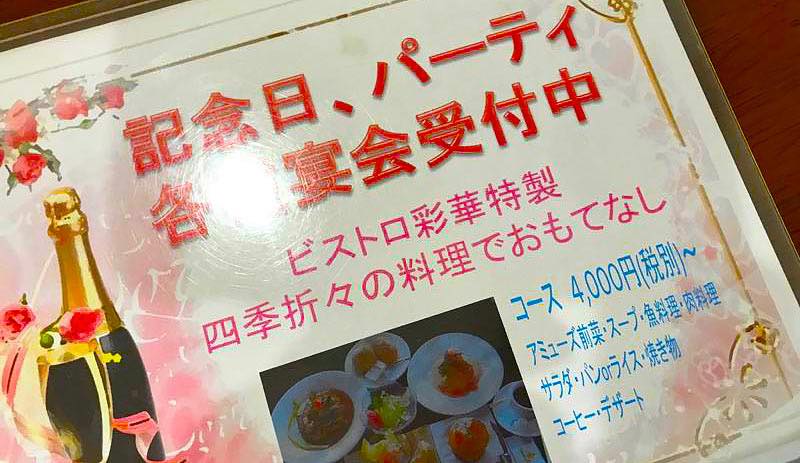 記念日、パーティ
各 宴会受付中
ビストロ彩華特製
四季折々の料理でおもてなし
コース 4,000円(税別)~
アミューズ前菜・スープ・魚料理・肉料理
サラダ・パンorライス・焼き物
コーヒー・デザート